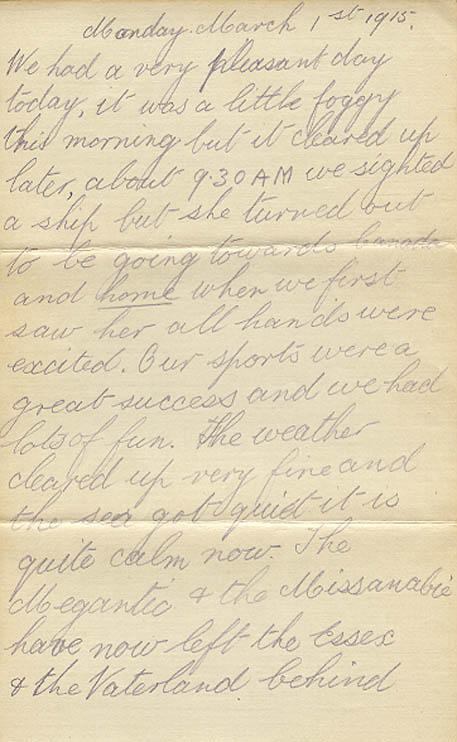 Monday. March 1st 1915.
We had a very pleasant day
today, it was a little foggy
this morning but it cleared up
later, about 9.30 AM we sighted
a ship but she turned out
to be going towards Canada
and home when we first
saw her all hands were
excited. Our sports were a
great success and we had
lots of fun. The weather
cleared up very fine and
the sea got quiet it is
quite calm now. The
Megantic & the Missanabie
have now left the Essex
& the Vaterland behind